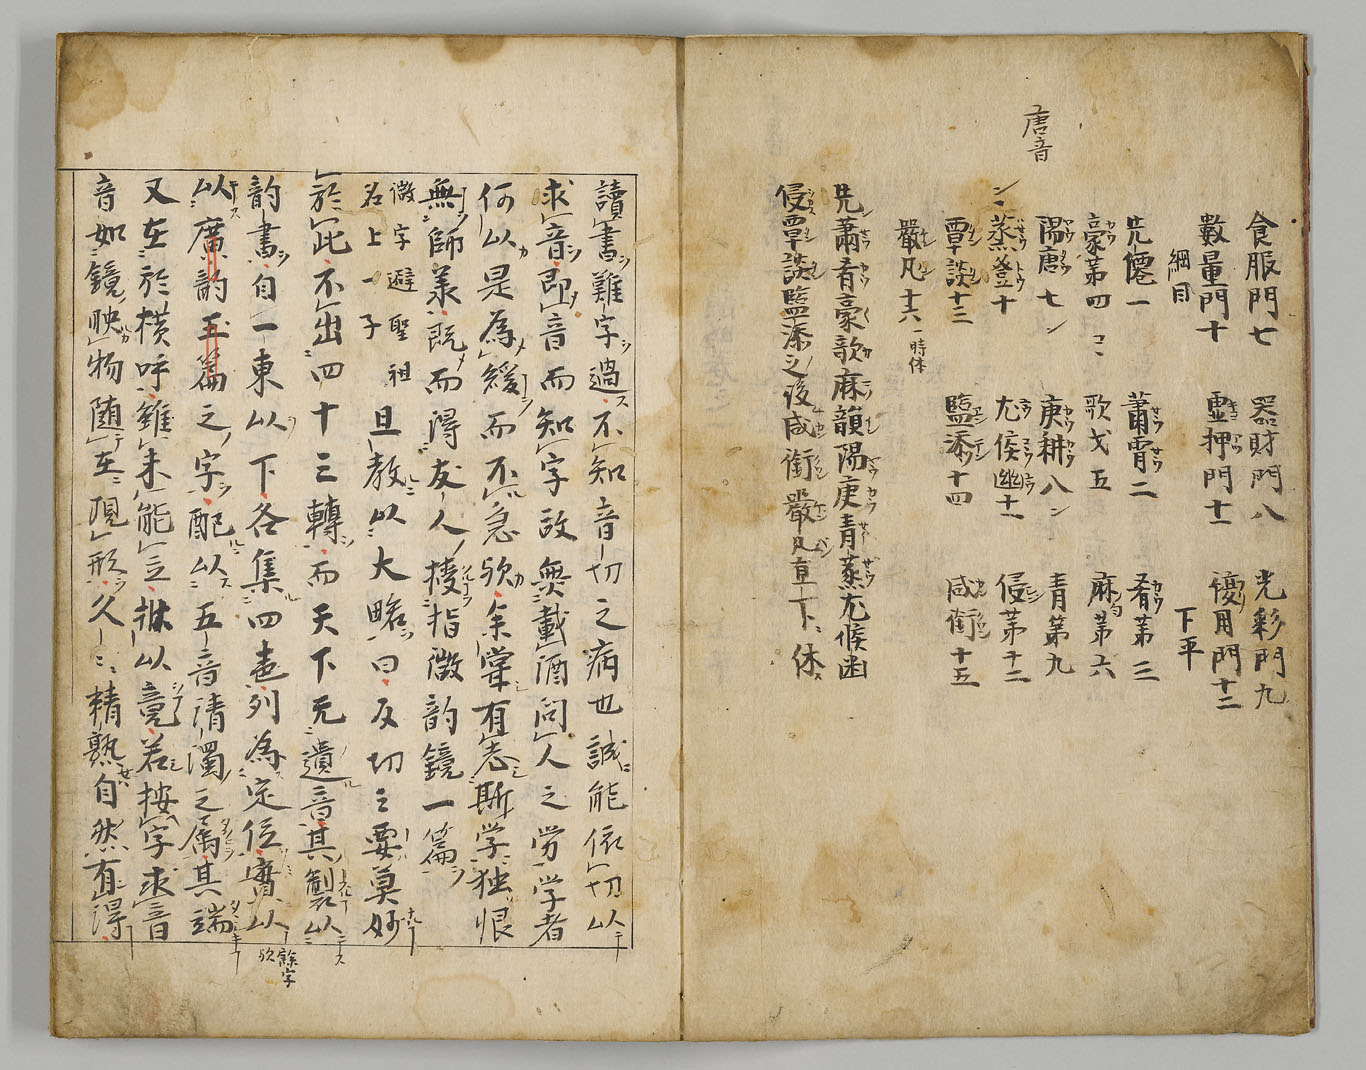 唐音
食服門七 器財門八 光彩門九
數量門十 虚押門十一 優用門十二
綱目 下平
先僊一 蕭宵二 肴第三
豪第四 歌戈五 麻第六
陽唐七 庚耕八 青第九
蒸登十 尤侯幽十一 侵第十二
覃談十三 監添十四 咸銜十五
嚴凡十六 一時休
先蕭肴豪歌麻韻陽庚青蒸尤候幽
侵覃談監添之後咸銜嚴凡亘下休
讀書難字過不知音切之病也誠能依切以
求音即音而知字故無載酒問人之労学者
何以是為緩而不急欤余嘗有志斯学独恨
無師羕既而得友人授指微韵鏡一篇
微字避聖祖
名上一子
且教以大略曰反切之要莫妙
於此不出四十三轉而天下无遺音其製以
韵書自一東以下各集四声列為定位實以
廣韵玉篇之字配以五音清濁之属其端
又在於横呼雖未能立談以竟若按字求音
音如鏡映物随在現形久〻精熟自然有得
餘字
欤